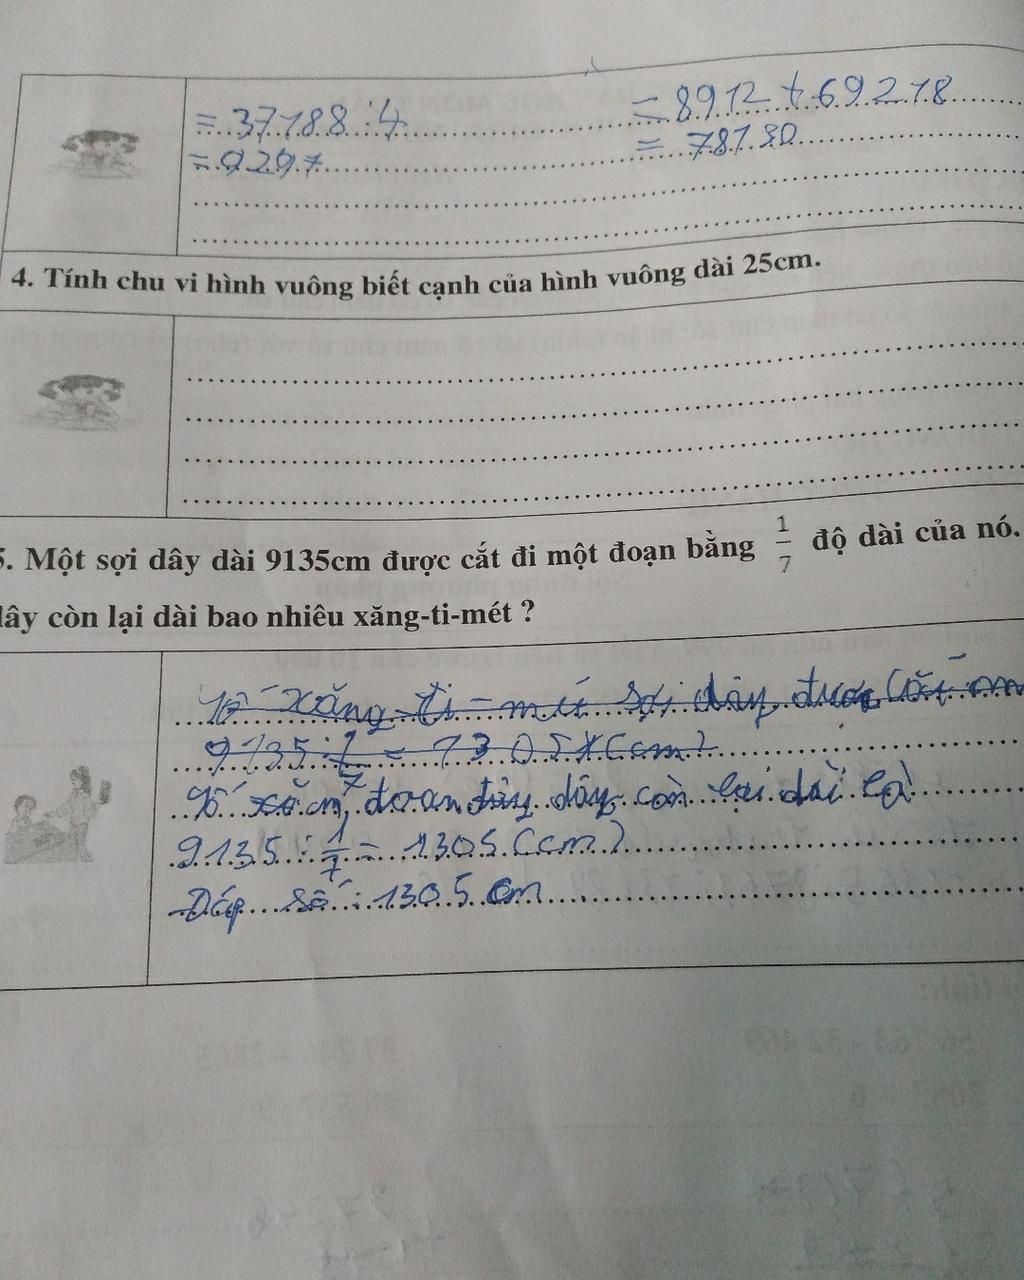 = 37188 : 4
= 8912 + 69218
= 9297
= 78130
4. Tính chu vi hình vuông biết cạnh của hình vuông dài 25cm.
5. Một sợi dây dài 9135cm được cắt đi một đoạn bằng 1/7 độ dài của nó.
dây còn lại dài bao nhiêu xăng-ti-mét ?
Số xăng-ti-mét sợi dây được cắt
9135 : 1/7 = 1305 (cm)
Số cm đoạn dây còn lại dài là
9135 : 1/7 = 1305 (cm)
Đáp số : 1305 cm